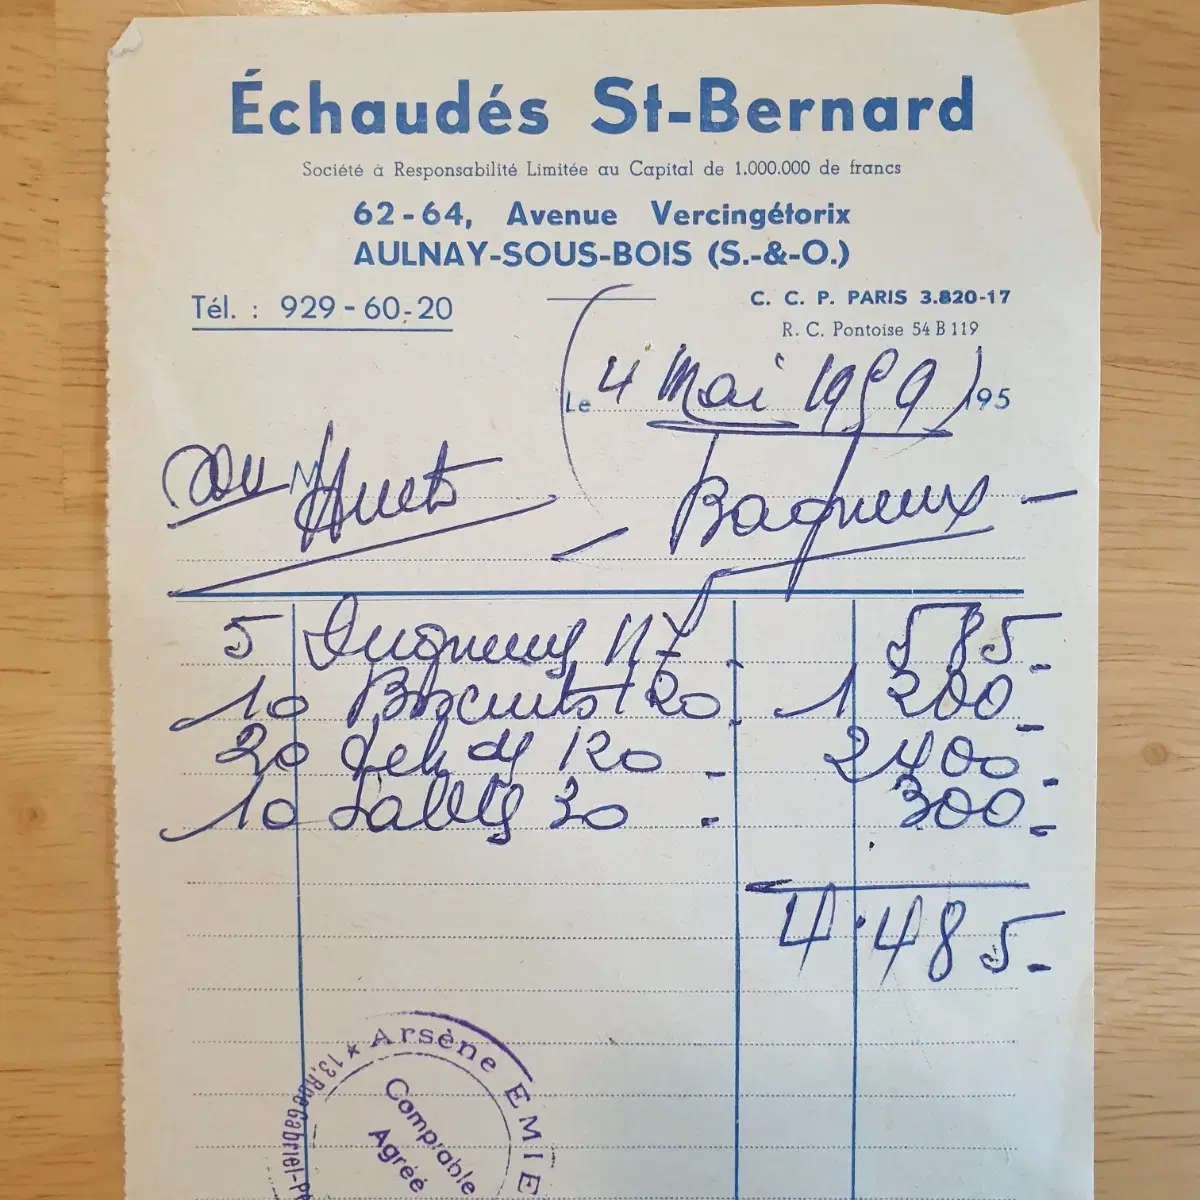 Échaudés St-Bernard
Société à Responsabilité Limitée au Capital de 1.000.000 de francs
62-64, Avenue Vercingétorix
AULNAY-SOUS-BOIS (S.-&-O.)
Tél. : 929-60-20
C. C. P. PARIS 3.820-17
R. C. Pontoise 54 B 119
Le 4 Mai 1959 195
M Huet
Bagneux
5 117 585.-
10 Biscuits 120 1 200.-
20 120 2400.-
10 Sablés 30 300.-
4.485.-
Arsène EMIE
★ 13, Rue Gabriel-P
Comptable
Agréé